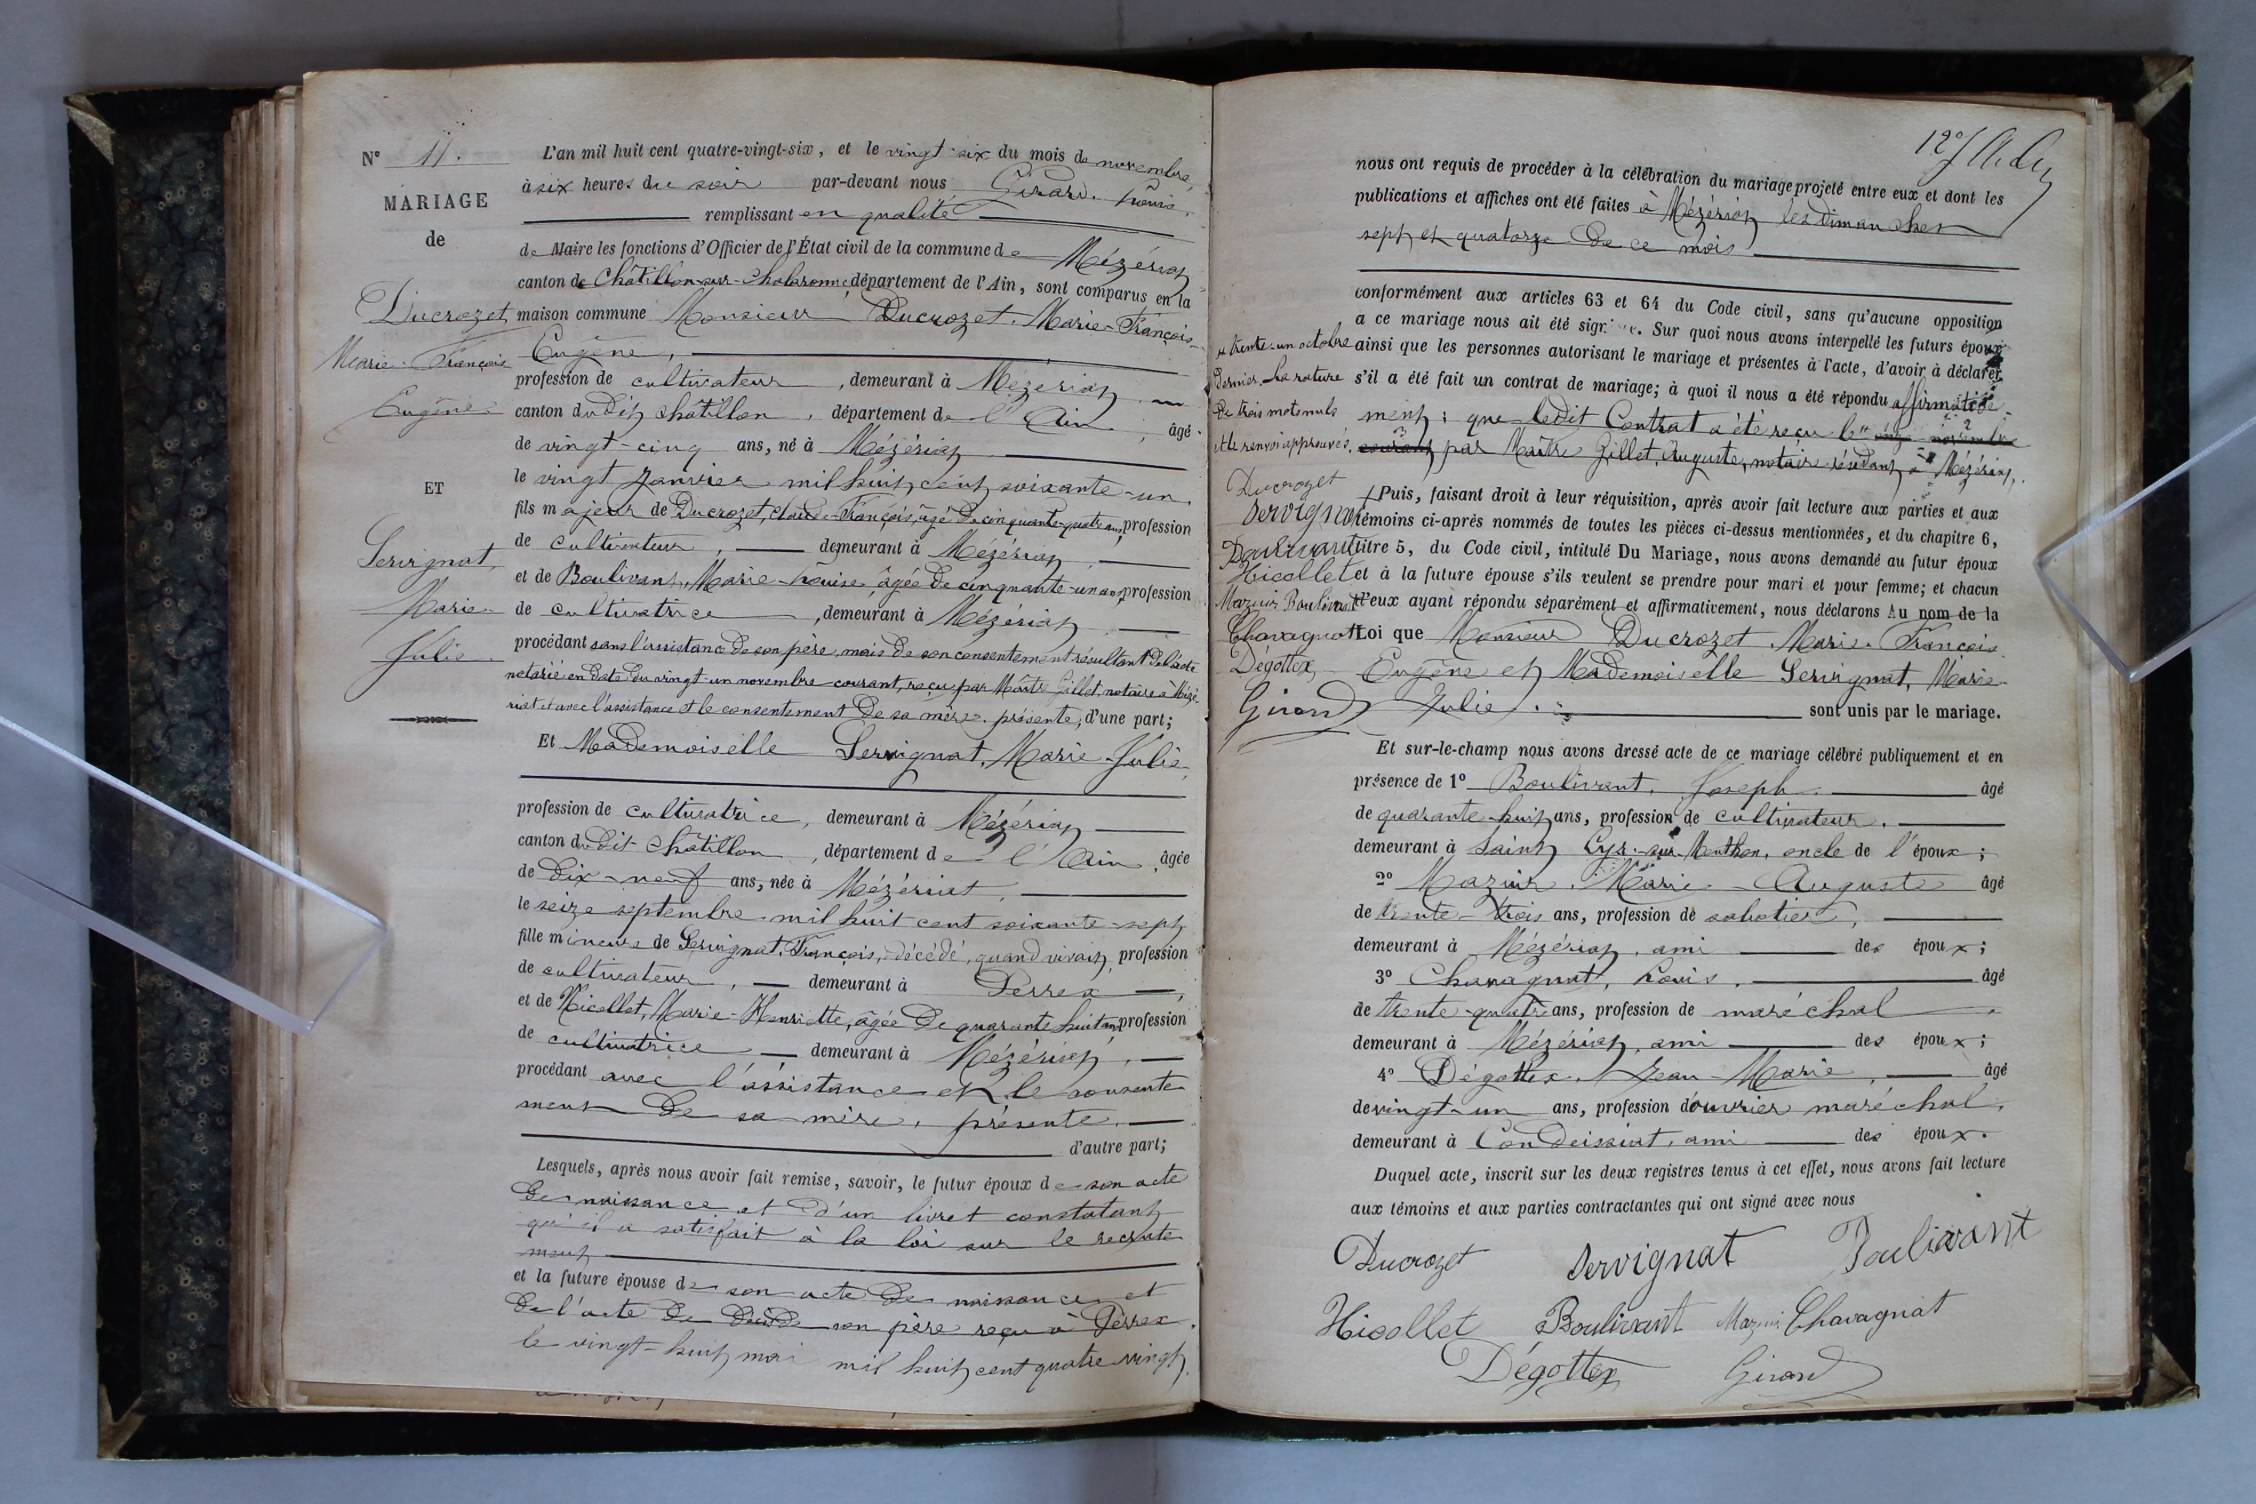 N° 11.
MARIAGE
de
Ducrozet
Marie-François
Eugène
ET
Servignat,
Marie-
Julie.
L'an mil huit cent quatre-vingt-six, et le vingt-six du mois de novembre,
à six heures du soir par-devant nous Girard, Louis.
remplissant en qualité
de Maire les fonctions d'Officier de l'État civil de la commune de Mézériat
canton de Châtillon-sur-Chalaronne département de l'Ain, sont comparus en la
maison commune Monsieur Ducrozet, Marie-François-
Eugène,
profession de cultivateur, demeurant à Mézériat
canton dudit Châtillon, département de l'Ain, âgé
de vingt-cinq ans, né à Mézériat
le vingt Janvier mil huit cent soixante-un.
fils majeur de Ducrozet, Claude-François, âgé de cinquante-quatre ans, profession
de cultivateur, demeurant à Mézériat,
et de Boulivant, Marie-Louise, âgée de cinquante-un ans, profession
de cultivatrice, demeurant à Mézériat
procédant sans l'assistance de son père, mais de son consentement résultant de l'acte
notarié en date du vingt-un novembre courant, reçu par Maître Gillet, notaire à Mézé-
riat et avec l'assistance et le consentement de sa mère, présente, d'une part;
Et Mademoiselle Servignat, Marie-Julie,
profession de cultivatrice, demeurant à Mézériat
canton dudit Châtillon, département de l'Ain, âgée
de dix-neuf ans, née à Mézériat,
le seize septembre mil huit cent soixante-sept
fille mineure de Servignat, François, décédé, quand vivait, profession
de cultivateur, demeurant à Perrex,
et de Nicollet, Marie-Henriette, âgée de quarante huit ans, profession
de cultivatrice demeurant à Mézériat,
procédant avec l'assistance et le consente-
ment de sa mère, présente,
d'autre part;
Lesquels, après nous avoir fait remise, savoir, le futur époux de son acte
de naissance et d'un livret constatant
qu'il a satisfait à la loi sur le recrute-
ment
et la future épouse de son acte de naissance et
de l'acte de décès de son père reçu à Perrex,
le vingt-huit mai mil huit cent quatre-vingt,
12e
nous ont requis de procéder à la célébration du mariage projeté entre eux et dont les
publications et affiches ont été faites à Mézériat les dimanches
sept et quatorze de ce mois
conformément aux articles 63 et 64 du Code civil, sans qu'aucune opposition
a ce mariage nous ait été sign. Sur quoi nous avons interpellé les futurs époux
ainsi que les personnes autorisant le mariage et présentes à l'acte, d'avoir à déclarer
s'il a été fait un contrat de mariage; à quoi il nous a été répondu affirmative-
ment: que ledit Contrat a été reçu le onze novembre
courant par Maître Gillet, Auguste, notaire résidant à Mézériat.
trente-un octobre
dernier. La rature
de trois mots nuls
et le renvoi approuvés.
Ducrozet
Servignat
Boulivant
Nicollet
Mazuir Boulivant
Chavagnat
Dégottex
Girard
Puis, faisant droit à leur réquisition, après avoir fait lecture aux parties et aux
témoins ci-après nommés de toutes les pièces ci-dessus mentionnées, et du chapitre 6,
titre 5, du Code civil, intitulé Du Mariage, nous avons demandé au futur époux
et à la future épouse s'ils veulent se prendre pour mari et pour femme; et chacun
d'eux ayant répondu séparément et affirmativement, nous déclarons Au nom de la
Loi que Monsieur Ducrozet, Marie-François
Eugène et Mademoiselle Servignat, Marie-
Julie. sont unis par le mariage.
Et sur-le-champ nous avons dressé acte de ce mariage célébré publiquement et en
présence de 1° Boulivant, Joseph âgé
de quarante-huit ans, profession de cultivateur,
demeurant à Saint Cyr-sur-Menthon, oncle de l'époux;
2° Mazuir, Marie-Auguste âgé
de trente-trois ans, profession de sabotier,
demeurant à Mézériat, ami des époux;
3° Chavagnat, Louis, âgé
de trente-quatre ans, profession de maréchal
demeurant à Mézériat, ami des époux;
4° Dégottex, Jean-Marie, âgé
de vingt-un ans, profession d'ouvrier maréchal,
demeurant à Condeissiat, ami des époux.
Duquel acte, inscrit sur les deux registres tenus à cet effet, nous avons fait lecture
aux témoins et aux parties contractantes qui ont signé avec nous
Ducrozet Servignat Boulivant
Nicollet Boulivant Mazuir Chavagnat
Dégottex Girard